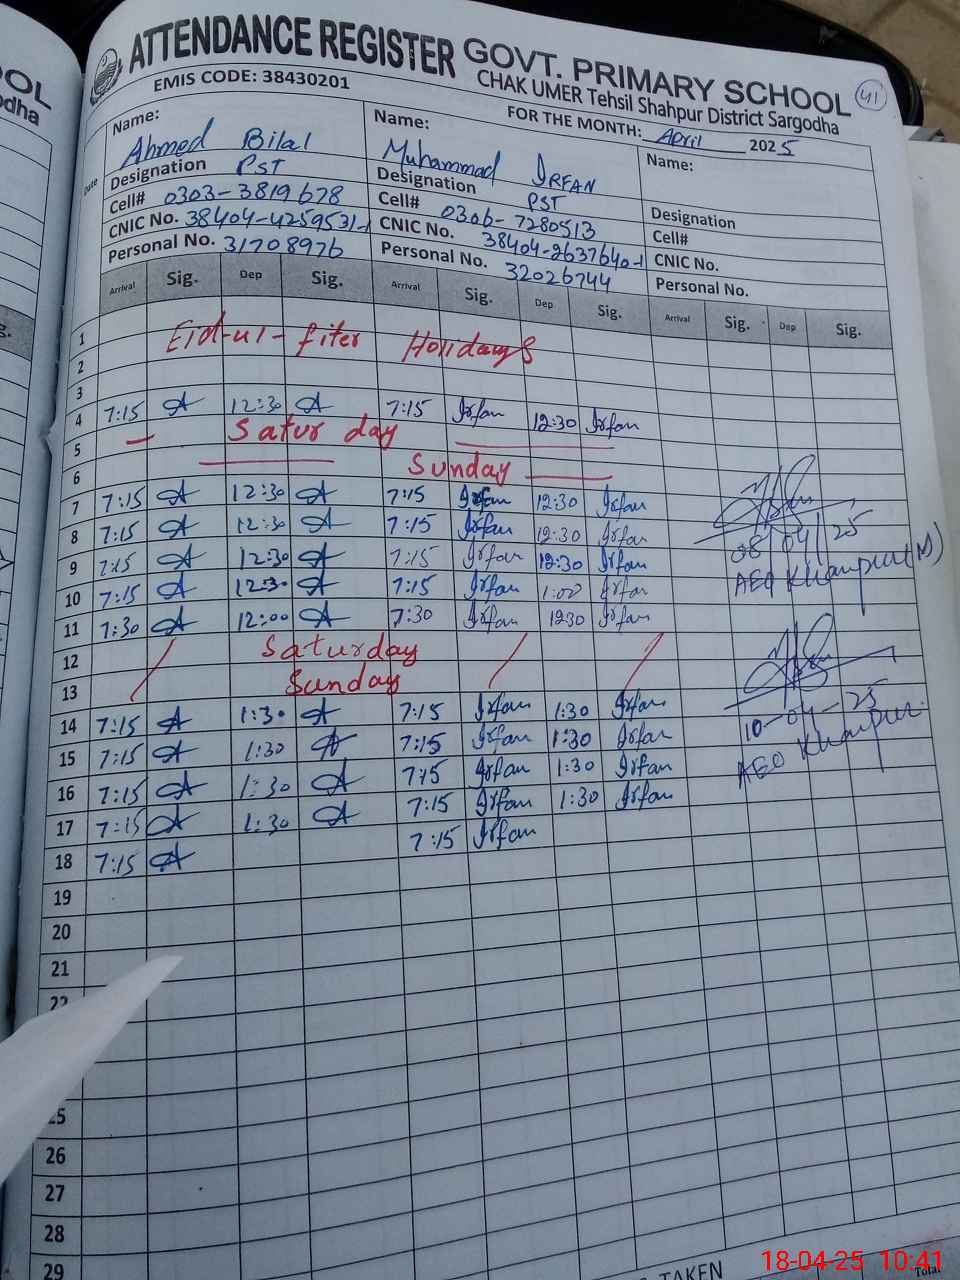 OOL
odha
g.
ATTENDANCE REGISTER GOVT. PRIMARY SCHOOL
41
EMIS CODE: 38430201
CHAK UMER Tehsil Shahpur District Sargodha
FOR THE MONTH: April 2025
Date
Name: Ahmed Bilal
Designation PST
Cell# 0303-3819678
CNIC No. 38404-4259531-1
Personal No. 31708976
Name: Muhammad IRFAN
Designation PST
Cell# 0306-7280513
CNIC No. 38404-2637640-1
Personal No. 32026744
Name:
Designation
Cell#
CNIC No.
Personal No.
Arrival Sig. Dep Sig. Arrival Sig. Dep Sig. Arrival Sig. Dep Sig.
1 Eid-ul-fiter Holidays
2
3
4 7:15 A 12:30 A 7:15 Irfan 12:30 Irfan
5 Saturday
6 Sunday
7 7:15 A 12:30 A 7:15 Irfan 12:30 Irfan
8 7:15 A 12:30 A 7:15 Irfan 12:30 Irfan
08/04/25
9 7:15 A 12:30 A 7:15 Irfan 12:30 Irfan
AEO Khanpur(M)
10 7:15 A 12:30 A 7:15 Irfan 1:00 Irfan
11 7:30 A 12:00 A 7:30 Irfan 12:30 Irfan
12 Saturday
13 Sunday
14 7:15 A 1:30 A 7:15 Irfan 1:30 Irfan
10-04-25
15 7:15 A 1:30 A 7:15 Irfan 1:30 Irfan
AEO Khanpur
16 7:15 A 1:30 A 7:15 Irfan 1:30 Irfan
17 7:15 A 1:30 A 7:15 Irfan 1:30 Irfan
18 7:15 A 7:15 Irfan
19
20
21
22
25
26
27
28
29
TAKEN
Total
18-04-25 10:41